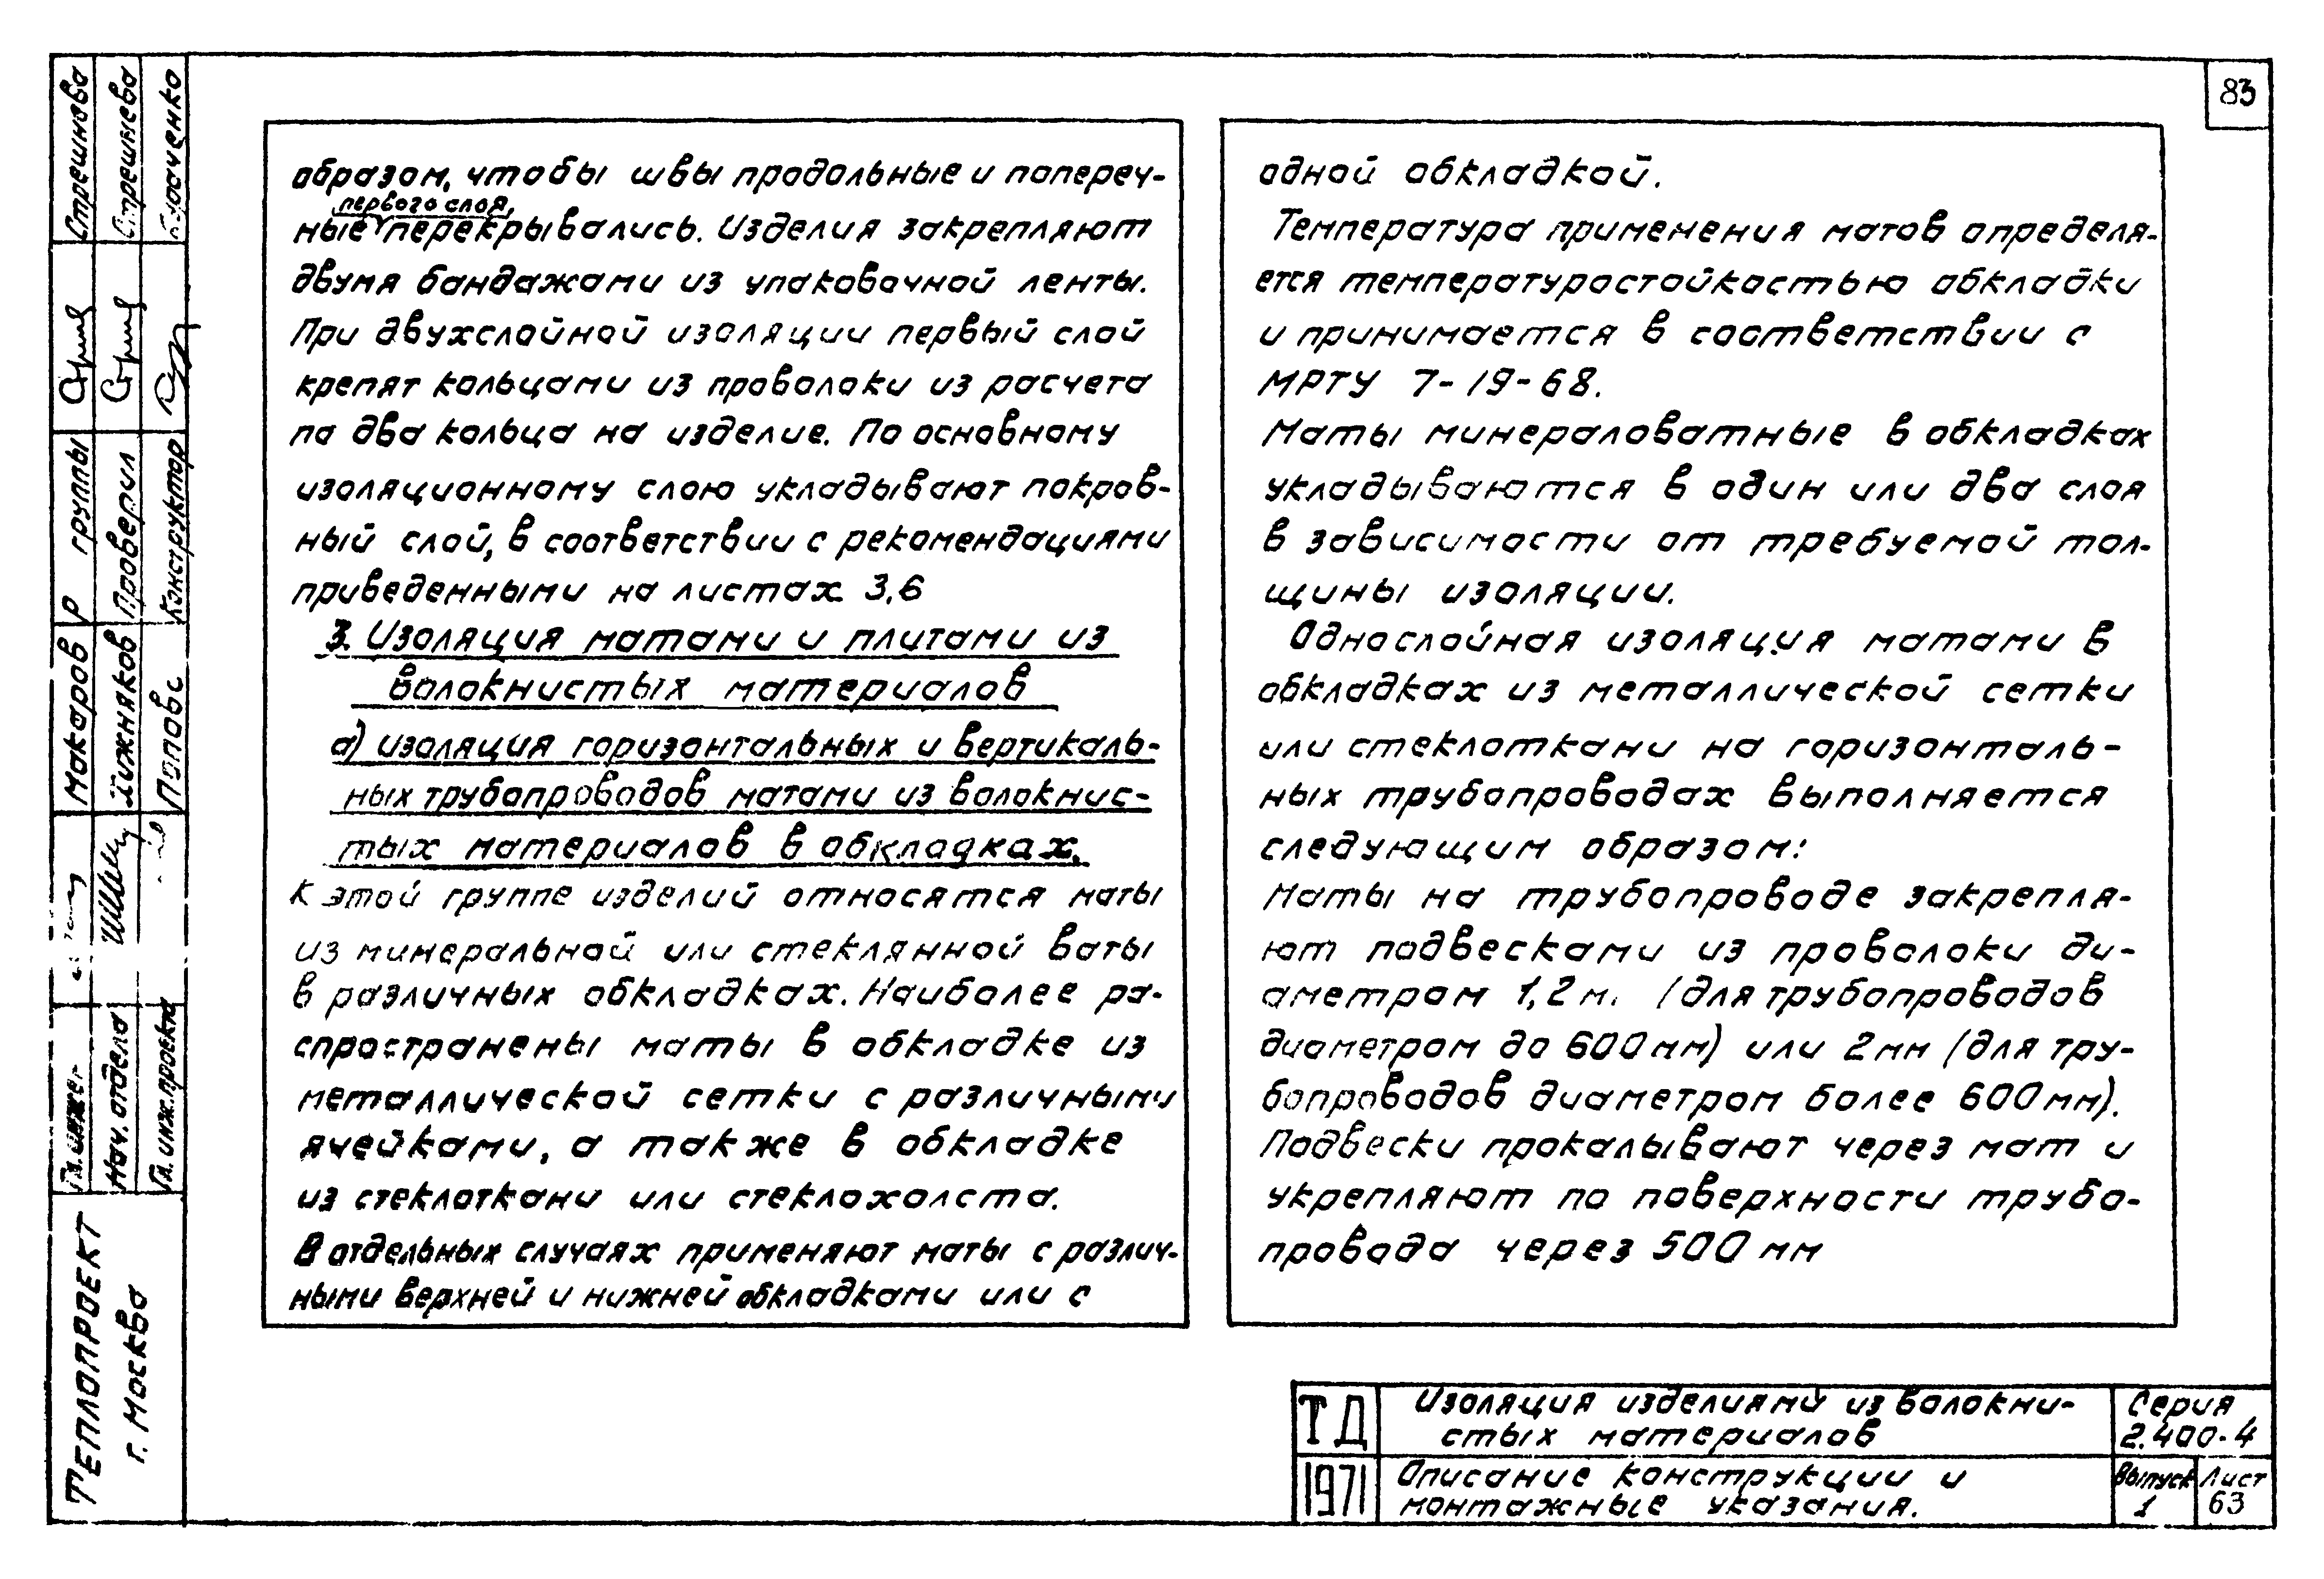 83
образом, чтобы швы продольные и попереч-
первого слоя,
ные перекрывались. Изделия закрепляют
двумя бандажами из упаковочной ленты.
При двухслойной изоляции первый слой
крепят кольцами из проволоки из расчета
па два кольца на изделие. По основному
изоляционному слою укладывают покров-
ный слой, в соответствии с рекомендациями
приведенными на листах 3,6
3. Изоляция матами и плитами из
волокнистых материалов
а) изоляция горизонтальных и вертикаль-
ных трубопроводов матами из волокнис-
тых материалов в обкладках.
К этой группе изделий относятся маты
из минеральной или стеклянной ваты
в различных обкладках. Наиболее ра-
спространены маты в обкладке из
металлической сетки с различными
ячейками, а также в обкладке
из стеклоткани или стеклохолста.
В отдельных случаях применяют маты с различ-
ными верхней и нижней обкладками или с
одной обкладкой.
Температура применения матов определя-
ется температуростойкостью обкладки
и принимается в соответствии с
МРТУ 7-19-68.
Маты минераловатные в обкладках
укладываются в один или два слоя
в зависимости от требуемой тол-
щины изоляции.
Однослойная изоляция матами в
обкладках из металлической сетки
или стеклоткани на горизонталь-
ных трубопроводах выполняется
следующим образом:
Маты на трубопроводе закрепля-
ют подвесками из проволоки ди-
аметром 1,2 м. (для трубопроводов
диаметром до 600 мм) или 2 мм (для тру-
бопроводов диаметром более 600 мм).
Подвески прокалывают через мат и
укрепляют по поверхности трубо-
провода через 500 мм
ТД
Изоляция изделиями из волокни-
стых материалов
Серия
2.400-4
1971
Описание конструкции и
монтажные указания.
Выпуск
1
Лист
63
Теплопроект
г. Москва
Гл. инже-
Нач. отдела
Гл. инж. проекта
Макаров
Хижняков
Попова
Р группы
Проверил
Конструктор
Стрешнева
Стрешнева